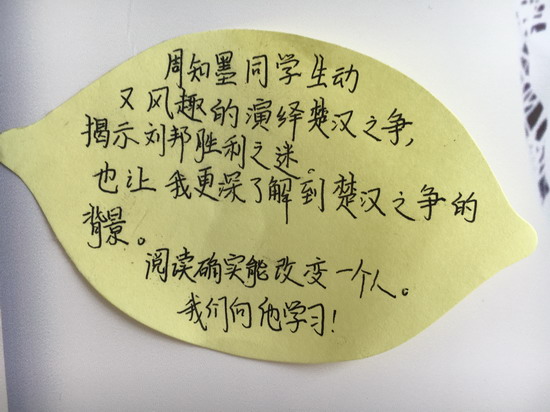 周知墨同学生动
又风趣的演绎楚汉之争,
揭示刘邦胜利之迷。
也让我更深了解到楚汉之争的
背景。
阅读确实能改变一个人。
我们向他学习!